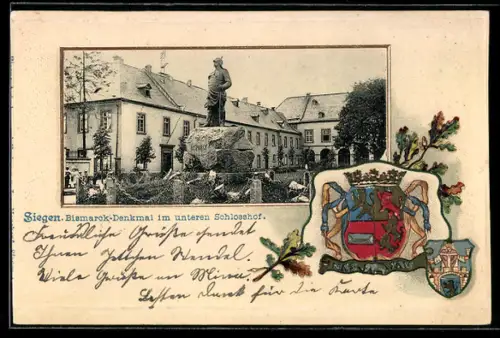 Siegen. Bismarck-Denkmal im unteren Schlosshof.
Freundliche Grüße sendet
Ihnen Wendel.
Viele Grüße an Mina.
Besten Dank für die Karte